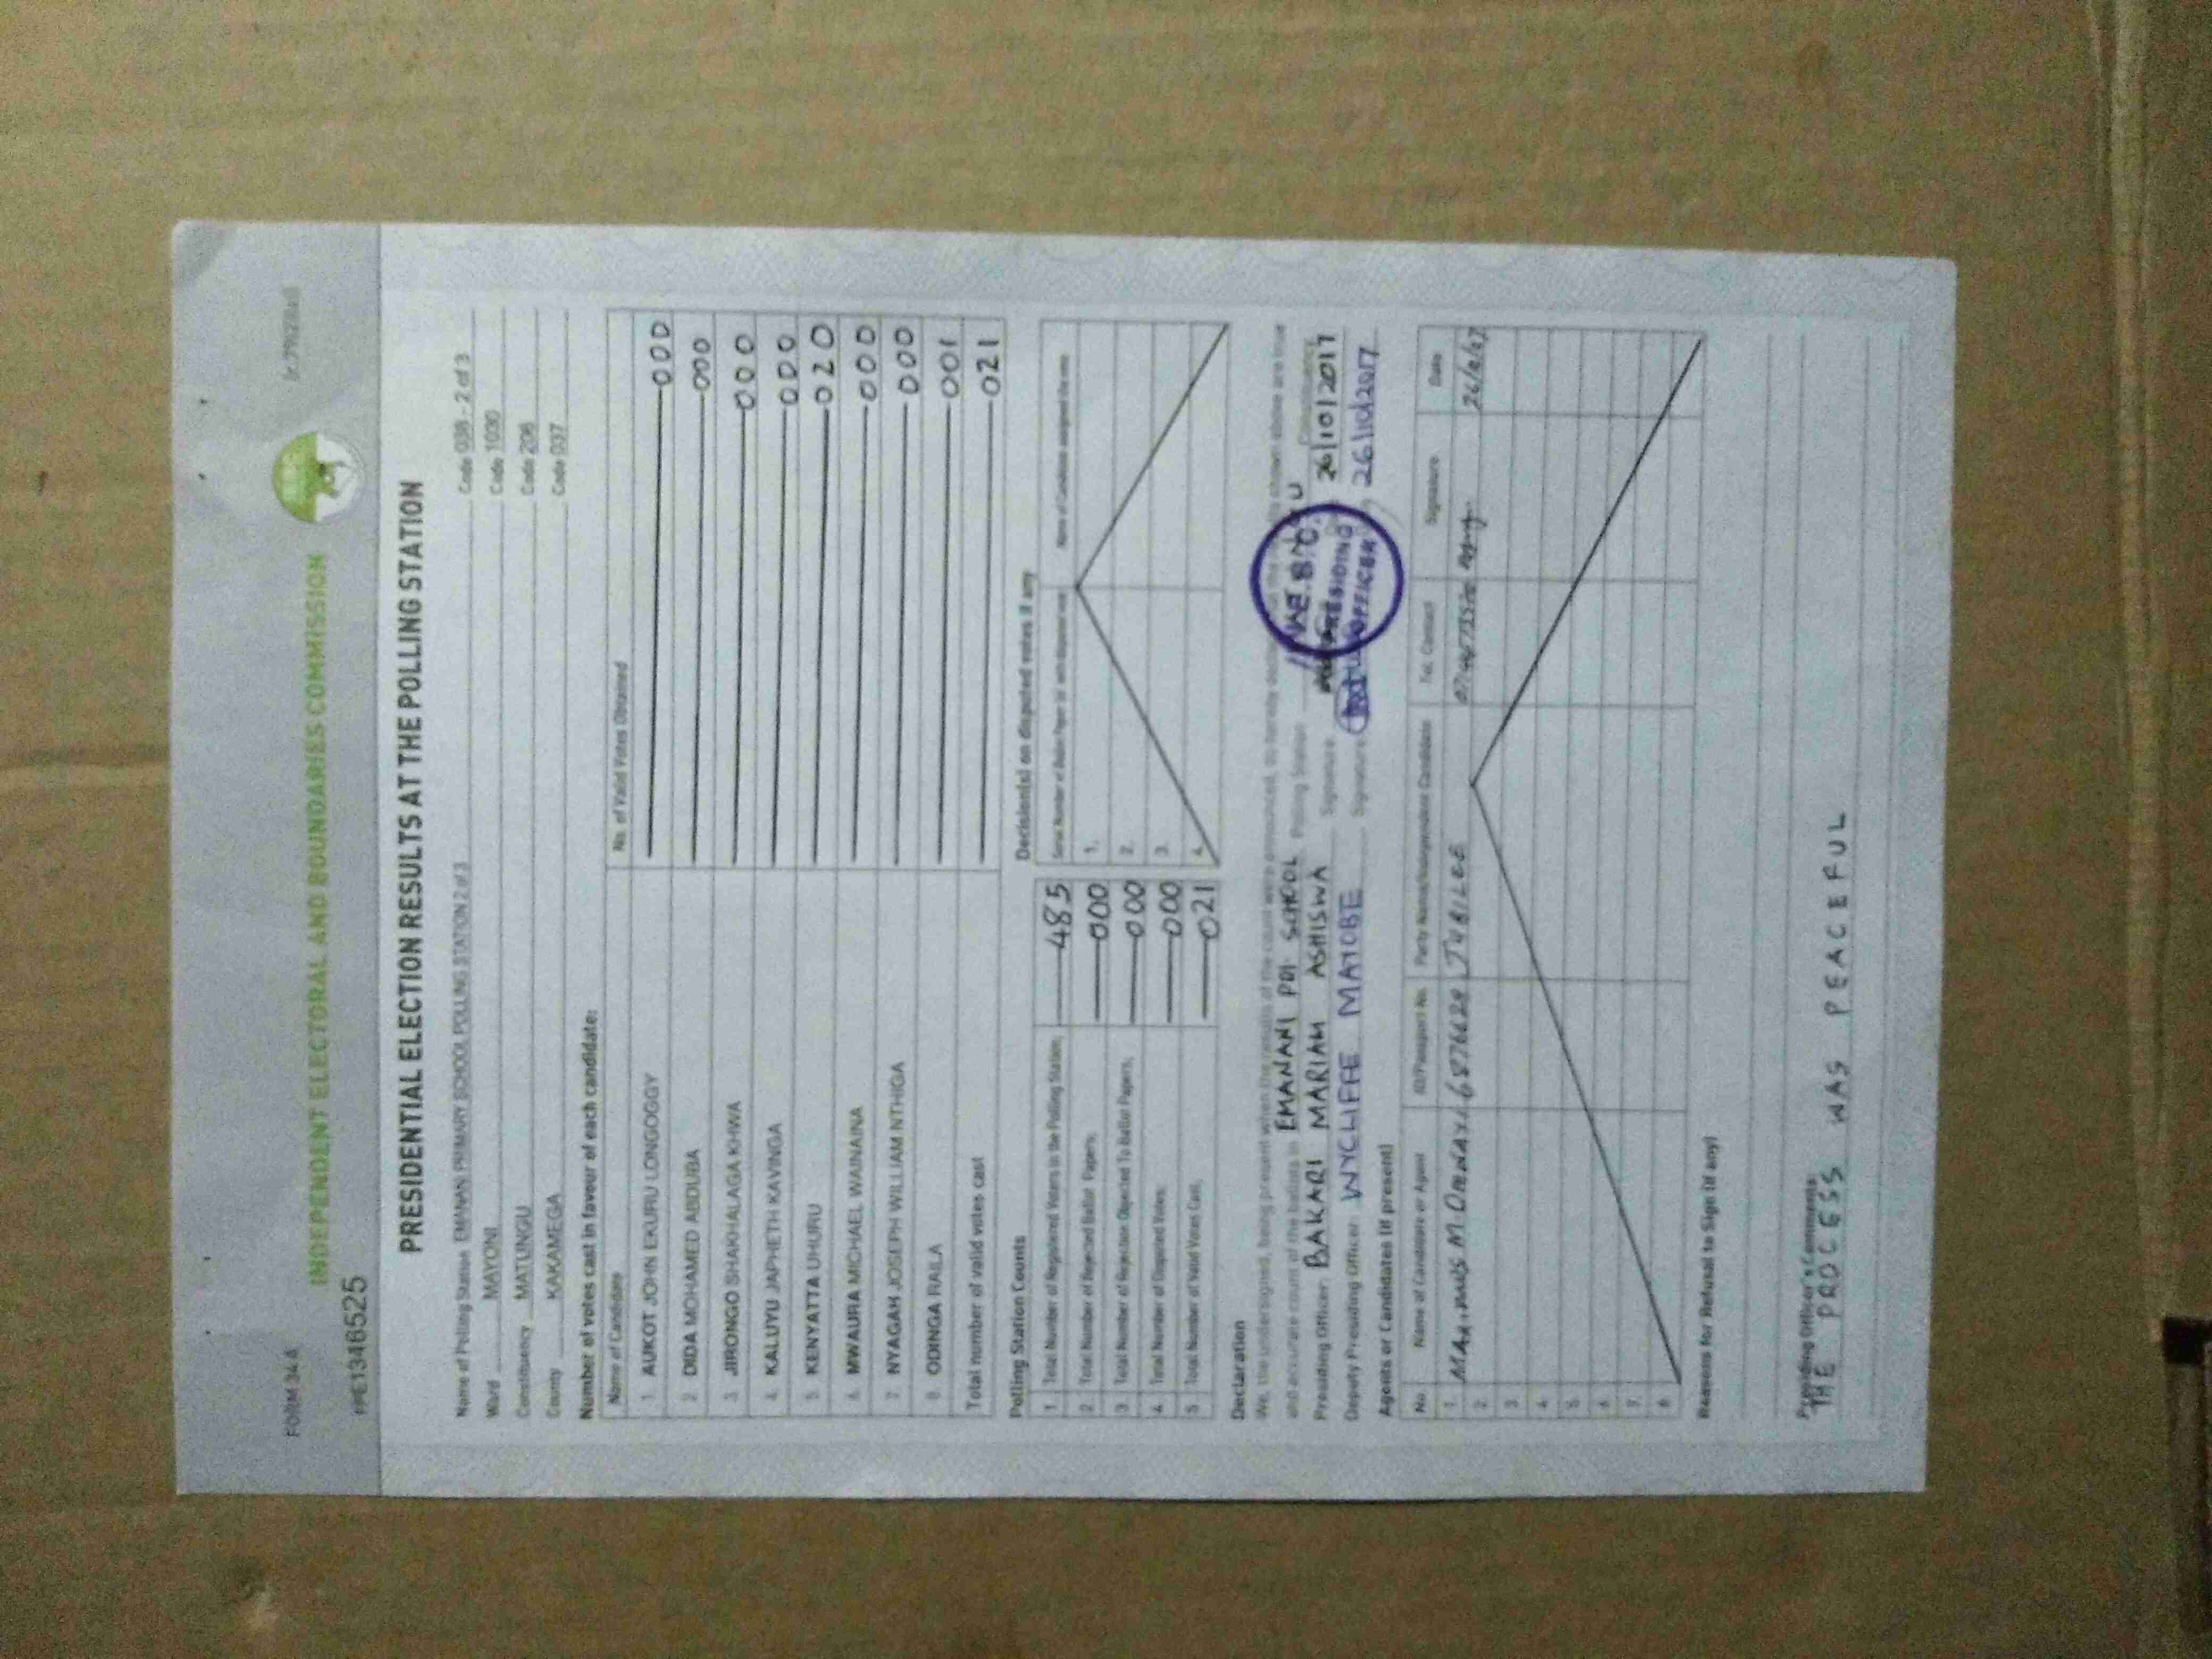 FORM 34A
INDEPENDENT ELECTORAL AND BOUNDARIES COMMISSION
PRESIDENTIAL ELECTION RESULTS AT THE POLLING STATION
Name of Polling Station EMANANI PRIMARY SCHOOL POLLING STATION 2 of 3 Code 038 - 2 of 3
Ward MAYONI Code 1030
Constituency MATUNGU Code 206
County KAKAMEGA Code 037
Number of votes cast in favour of each candidate:
Name of Candidate No. of Valid Votes Obtained
1. AUKOT JOHN EKURU LONGOGGY 000
2. DIDA MOHAMED ABDUBA 000
3. JIRONGO SHAKHALAGA KHWA 000
4. KALUYU JAPHETH KAVINGA 000
5. KENYATTA UHURU 020
6. MWAURA MICHAEL WAINAINA 000
7. NYAGAH JOSEPH WILLIAM NTHIGA 000
8. ODINGA RAILA 001
Total number of valid votes cast 021
Polling Station Counts
1. Total Number of Registered Voters in the Polling Station; 485
2. Total Number of Rejected Ballot Papers; 000
3. Total Number of Rejection Objected To Ballot Papers; 000
4. Total Number of Disputed Votes; 000
5. Total Number of Valid Votes Cast; 021
Decision(s) on disputed votes if any
1.
2.
3.
4.
Declaration
We, the undersigned, being present when the results of the count were announced, do hereby declare that the results shown above are true
and accurate count of the ballots in EMANANI PRI SCHOOL Polling Station Constituency
Presiding Officer: BAKARI MARIAM ASHISWA Signature 26/10/2017
Deputy Presiding Officer: WYCLIFFE MATOBE Signature 26/10/2017
PRESIDING
OFFICER
Agents or Candidates (if present)
No. Name of Candidate or Agent ID/Passport No. Party Name/Independent Candidate Tel. Contact Signature Date
1. JUBILEE
2.
3.
4.
5.
6.
7.
8.
Reasons for Refusal to Sign (if any)
Presiding Officer's Comments:
THE PROCESS WAS PEACEFUL